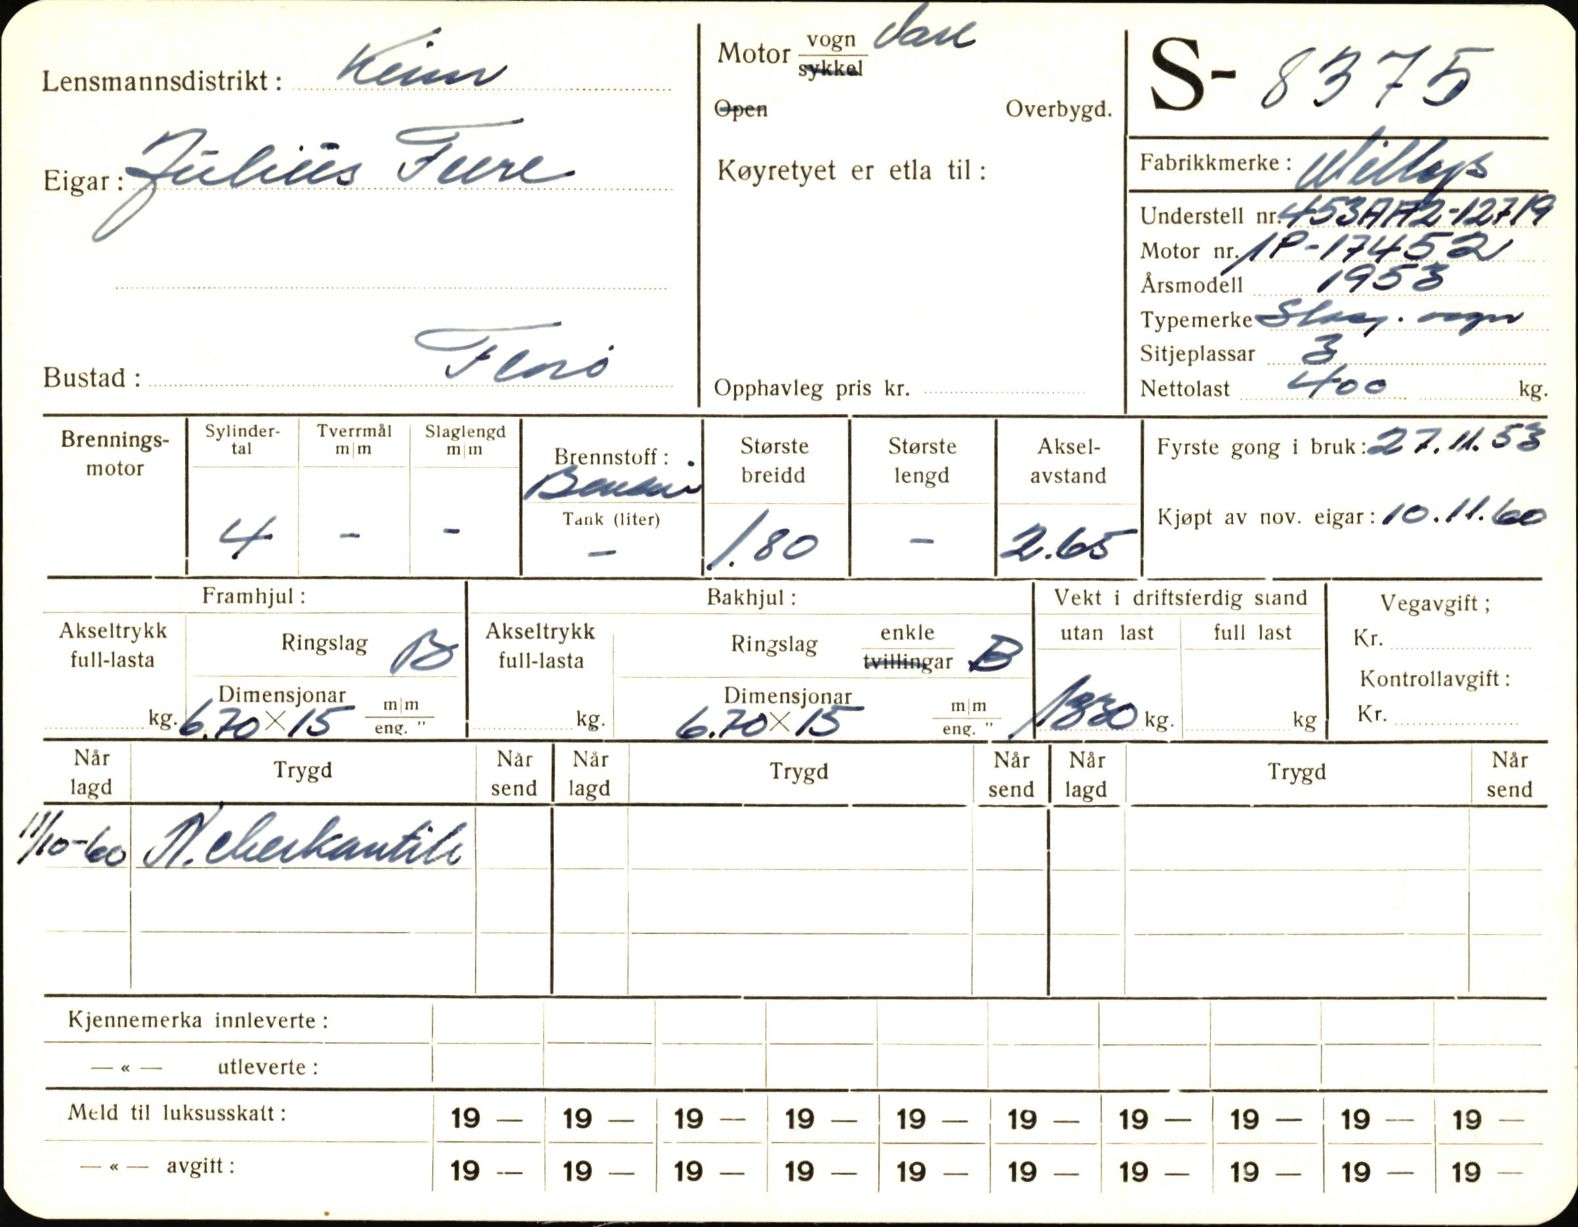 Lensmannsdistrikt: Kinn
Eigar: Julius Fure
Bustad: Florø
Motor vogn Vare
sykkel
Open Overbygd.
Køyretyet er etla til:
Opphavleg pris kr.
S- 8375
Fabrikkmerke: Willys
Understell nr. 453AA2-12719
Motor nr. 1P-17452
Årsmodell 1953
Typemerke Stasj. vogn
Sitjeplassar 3
Nettolast 400 kg.
Brennings-
motor
Sylinder-
tal
4
Tverrmål
m|m
-
Slaglengd
m|m
-
Brennstoff:
Bensin
Tank (liter)
-
Største
breidd
1.80
Største
lengd
-
Aksel-
avstand
2.65
Fyrste gong i bruk: 27.11.53
Kjøpt av nov. eigar: 10.11.60
Framhjul:
Akseltrykk
full-lasta
kg.
Ringslag B
Dimensjonar
6.70 × 15 m|m
eng. "
Bakhjul:
Akseltrykk
full-lasta
kg.
Ringslag enkle
tvillingar B
Dimensjonar
6.70 × 15 m|m
eng. "
Vekt i driftsferdig stand
utan last full last
1330 kg. kg
Vegavgift;
Kr.
Kontrollavgift:
Kr.
Når
lagd Trygd Når
send Når
lagd Trygd Når
send Når
lagd Trygd Når
send
11/10-60
Kjennemerka innleverte:
— « — utleverte:
Meld til luksusskatt: 19 — 19 — 19 — 19 — 19 — 19 — 19 — 19 — 19 — 19 —
— « — avgift: 19 — 19 — 19 — 19 — 19 — 19 — 19 — 19 — 19 — 19 —